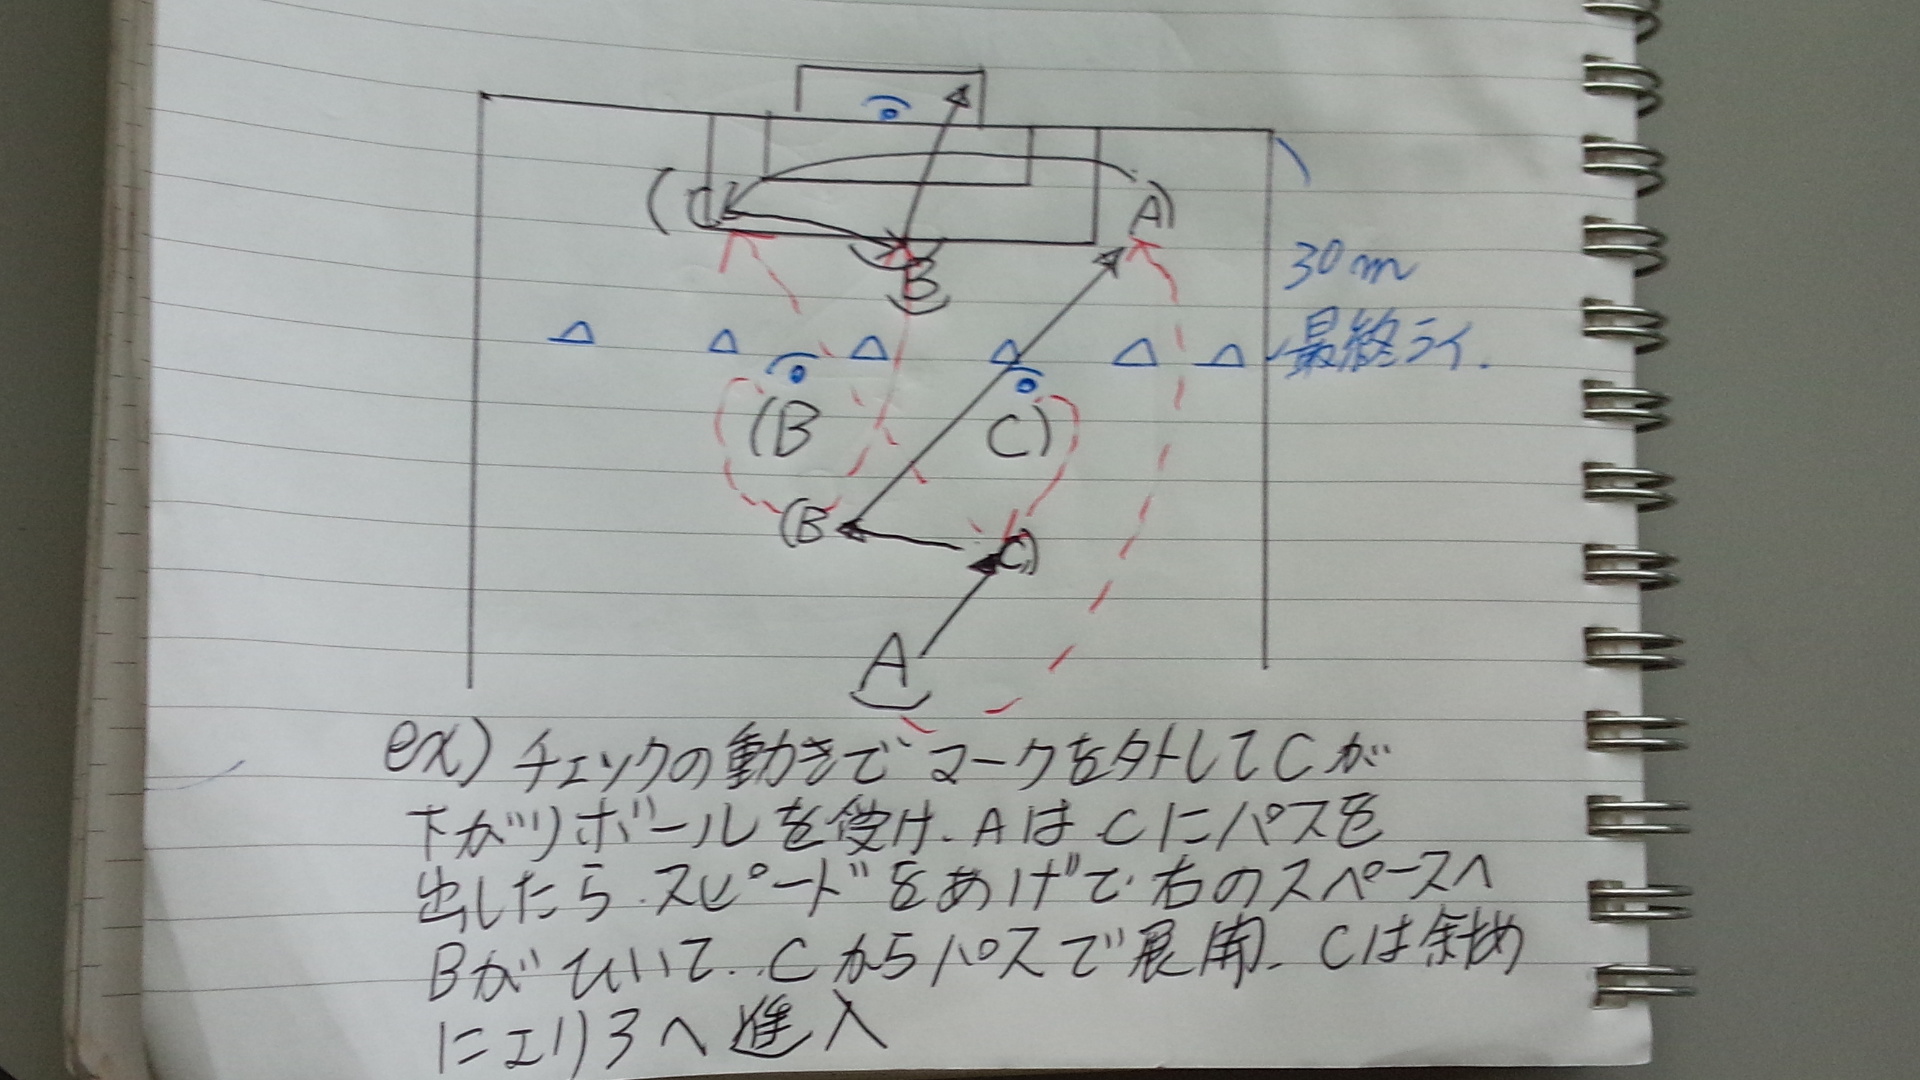 (C
A)
B
30m
最終ライ.
(B
C)
(B
C)
A
ex) チェックの動きでマークを外してCが
下がりボールを受け、AはCにパスを
出したら、スピードをあげて右のスペースへ
Bがひいて、CからパスでB展開、Cは斜め
にエリ3へ進入